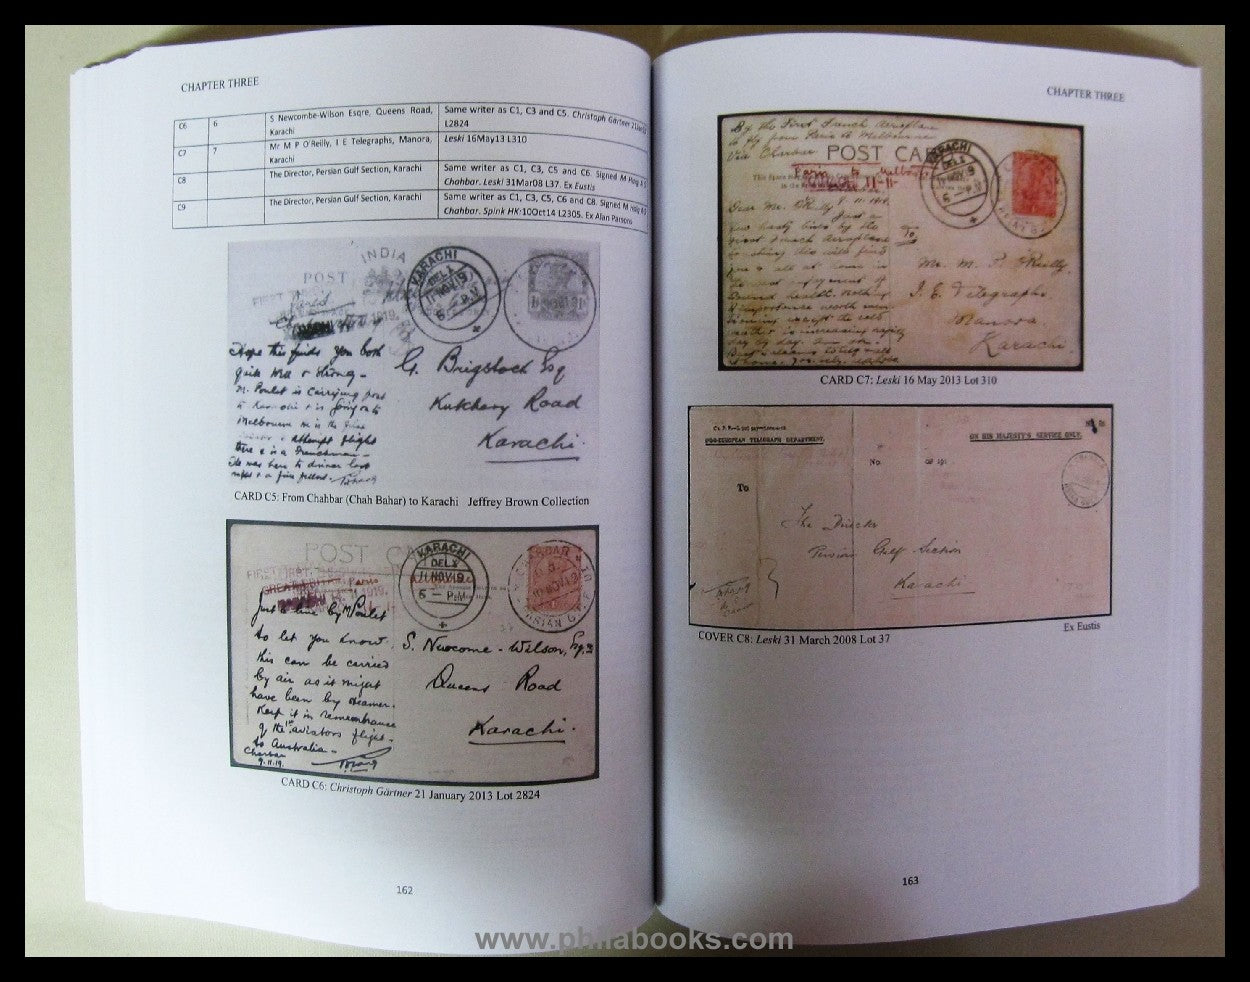 CHAPTER THREE
C6 6 S Newcombe-Wilson Esqre, Queens Road, Karachi Same writer as C1, C3 and C5. Christoph Gärtner 21Jan13 L2824
C7 7 Mr M P O'Reilly, I E Telegraphs, Manora, Karachi Leski 16May13 L310
C8 The Director, Persian Gulf Section, Karachi Same writer as C1, C3, C5 and C6. Signed M Hoig A S Chahbar. Leski 31Mar08 L37. Ex Eustis
C9 The Director, Persian Gulf Section, Karachi Same writer as C1, C3, C5, C6 and C8. Signed M Hoig A S Chahbar. Spink HK:10Oct14 L2305. Ex Alan Parsons
INDIA
POST
KARACHI
DELY
11 NOV 19
6 - P.M
Hope this finds you both
quite well & strong -
M. Poulet is carrying post
to Karachi & is going on to
Melbourne
attempt flight
Frenchman -
G. Brigstock Esq
Kutchery Road
Karachi.
CARD C5: From Chahbar (Chah Bahar) to Karachi Jeffrey Brown Collection
POST
KARACHI
DELY
11 NOV 19
6 - P.M
CHAHBAR
PERSIAN GULF
Just a line by M Poulet
to let you know
this can be carried
by air as it might
have been by steamer.
Keep it in remembrance
of the 1st aviators flight -
to Australia -
Chahbar
9.11.19.
S. Newcome - Wilson, Esq.
Queens Road
Karachi.
CARD C6: Christoph Gärtner 21 January 2013 Lot 2824
162
CHAPTER THREE
By the First French Aeroplane
to fly from Paris to Melbourne
Via Charbar
POST CARD
KARACHI
DELY
Paris to Melbourne
Dear Mr. O'Reilly
Just a
few hasty lines by the
first French Aeroplane
day by day.
To
Mr. M. P. O'Reilly,
I. E. Telegraphs
Manora
Karachi.
CARD C7: Leski 16 May 2013 Lot 310
INDO-EUROPEAN TELEGRAPH DEPARTMENT.
ON HIS MAJESTY'S SERVICE ONLY.
No.
OF 191
To
The Director
Persian Gulf Section
Karachi
COVER C8: Leski 31 March 2008 Lot 37
Ex Eustis
163
www.philabooks.com